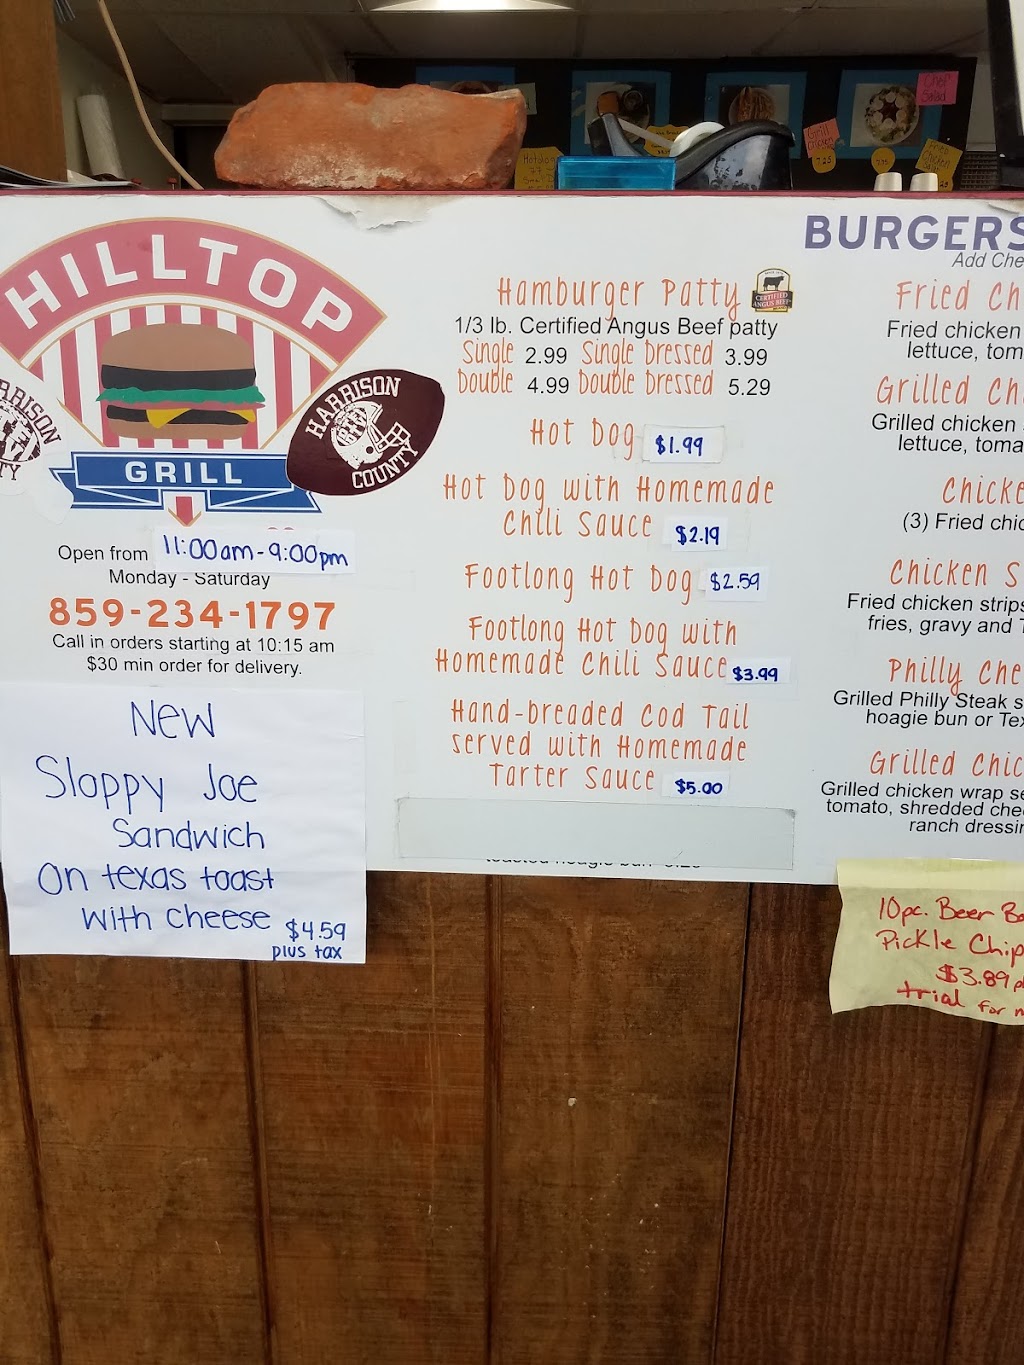 Chef
Salad
Grill
Chicken
7.25
Fried
Chicken
HILLTOP
GRILL
HARRISON
COUNTY
Open from 11:00am-9:00pm
Monday - Saturday
859-234-1797
Call in orders starting at 10:15 am
$30 min order for delivery.
New
Sloppy Joe
Sandwich
On texas toast
with cheese $4.59
plus tax
Hamburger Patty
CERTIFIED
ANGUS BEEF
1/3 lb. Certified Angus Beef patty
Single 2.99 Single Dressed 3.99
Double 4.99 Double Dressed 5.29
Hot Dog $1.99
Hot Dog with Homemade
Chili Sauce $2.19
Footlong Hot Dog $2.59
Footlong Hot Dog with
Homemade Chili Sauce $3.99
Hand-breaded Cod Tail
served with Homemade
Tarter Sauce $5.00
BURGERS
Add Che
Fried Ch
Fried chicken
lettuce, tom
Grilled Ch
Grilled chicken
lettuce, toma
Chicke
(3) Fried chic
Chicken S
Fried chicken strips
fries, gravy and T
Philly Che
Grilled Philly Steak s
hoagie bun or Tex
Grilled Chic
Grilled chicken wrap se
tomato, shredded chee
ranch dressin
10pc. Beer Ba
Pickle Chip
$3.89 pl
trial for n